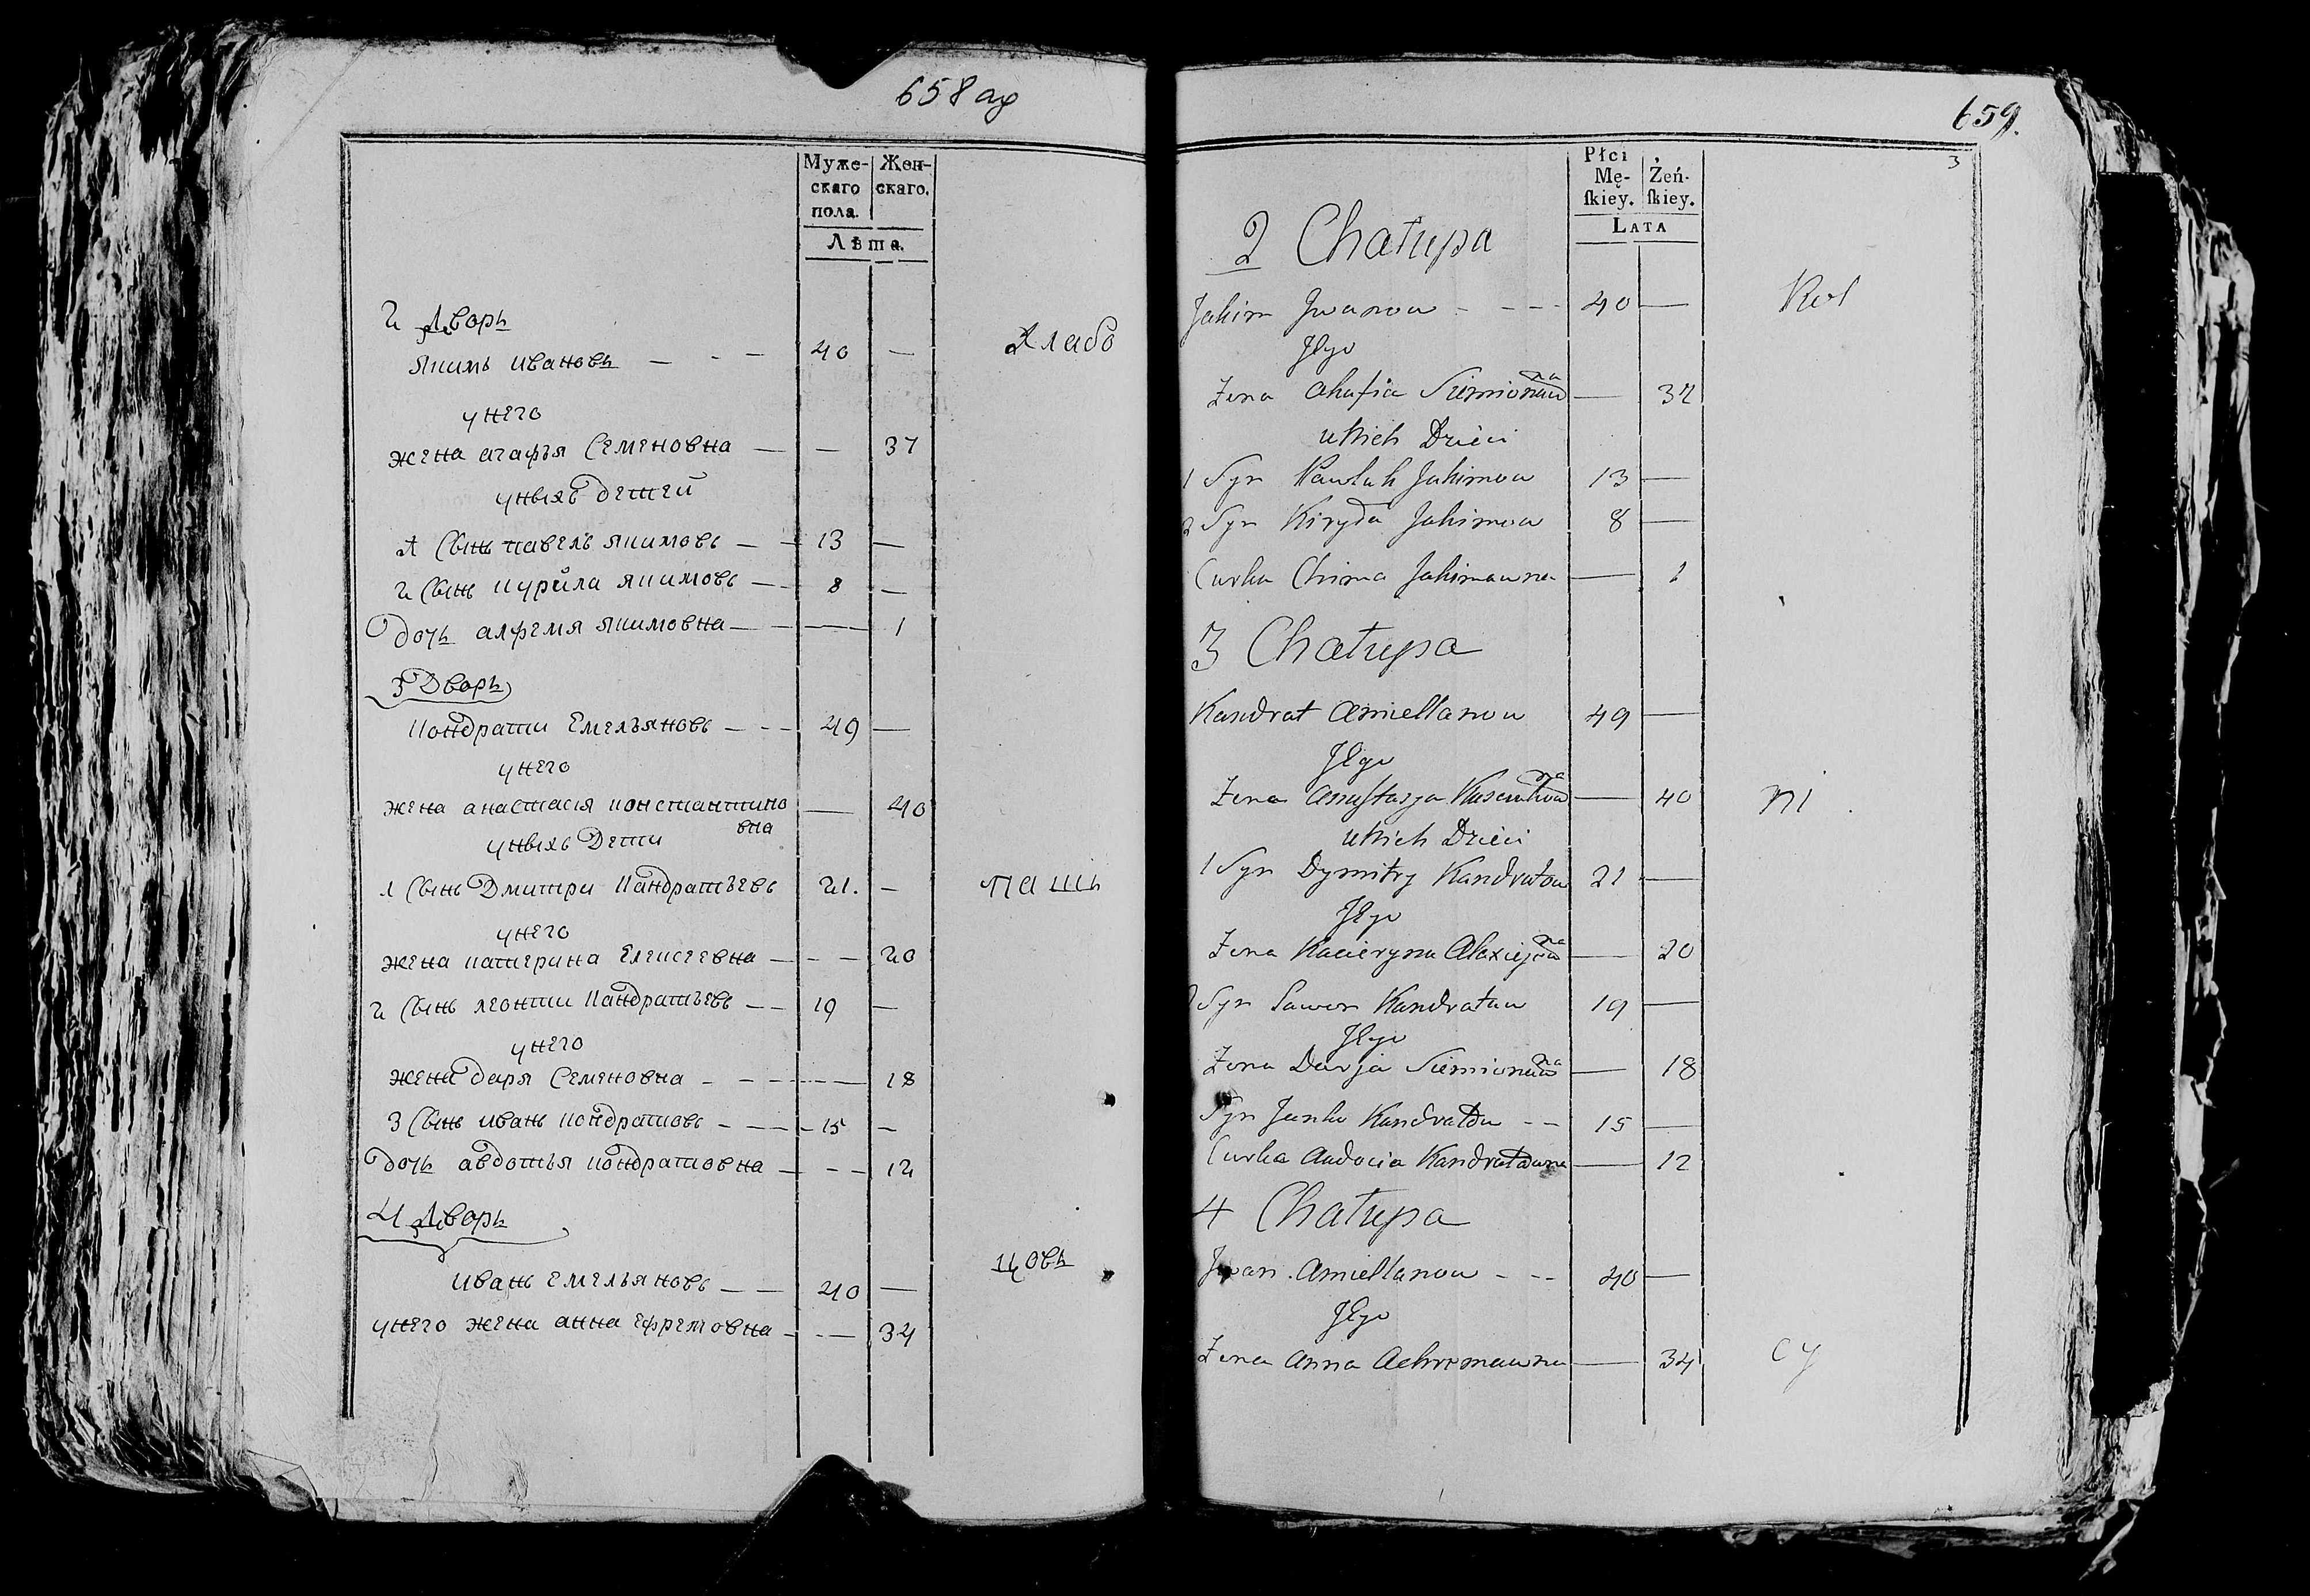 658 об
Муже-
скаго
пола.
Жен-
скаго.
Лѣта.
2 Дворъ
Якимъ Ивановъ — - — 40 —
унего
жена агафья Семеновна — — 37
унихъ детей
1 Сынъ павелъ якимовъ — — 13 —
2 Сынъ курила якимовъ — 8 —
дочь алфемя якимовна — — 1
3 Дворъ
Кондрати Емельяновъ — - - 49 —
унего
жена анастасія константино — 40
вна
унихъ Дети
1 Сынъ Дмитри Кандратьевъ 21. —
унего
жена катерина Елисеевна — - — 20
2 Сынъ леонти Кандратьевъ — — 19 —
унего
жена даря Семеновна - — - — 18
3 Сынъ иванъ кондратовъ - — - 15 —
дочь авдотья кондратовна — - - 12
4 Дворъ
иванъ емельяновъ — — 40 —
унего жена анна ефремовна - - — 34
Хлабо
паш
цовъ
659.
3
Płci
Mę-
ſkiey.
Żeń-
ſkiey.
LATA
2 Chałupa
Jakim Iwanow - - - - 40 —
Jego
Żona Ahafia Siemionaw — 37
na
u Nich Dzieci
1 Syn Pawluk Jakimow 13 —
2 Syn Kiryła Jakimow 8 —
Curka Chima Jakimawna — 1
3 Chałupa
Kandrat Amiellanow 49 —
Jego
Żona Anastazja — 40
na
u Nich Dzieci
1 Syn Dymitry Kandratow 21 —
Jego
Żona Kacieryna Alexiejow — 20
na
2 Syn Kandratow 19 —
Jego
Żona Darja Siemionaw — 18
na
Syn Janko Kandratow - - 15 —
Curka Audocia Kandratowna — 12
4 Chałupa
Iwan Amiellanow - - - 40 —
Jego
Żona Anna Achremawna — 34
Rol
ni
cy